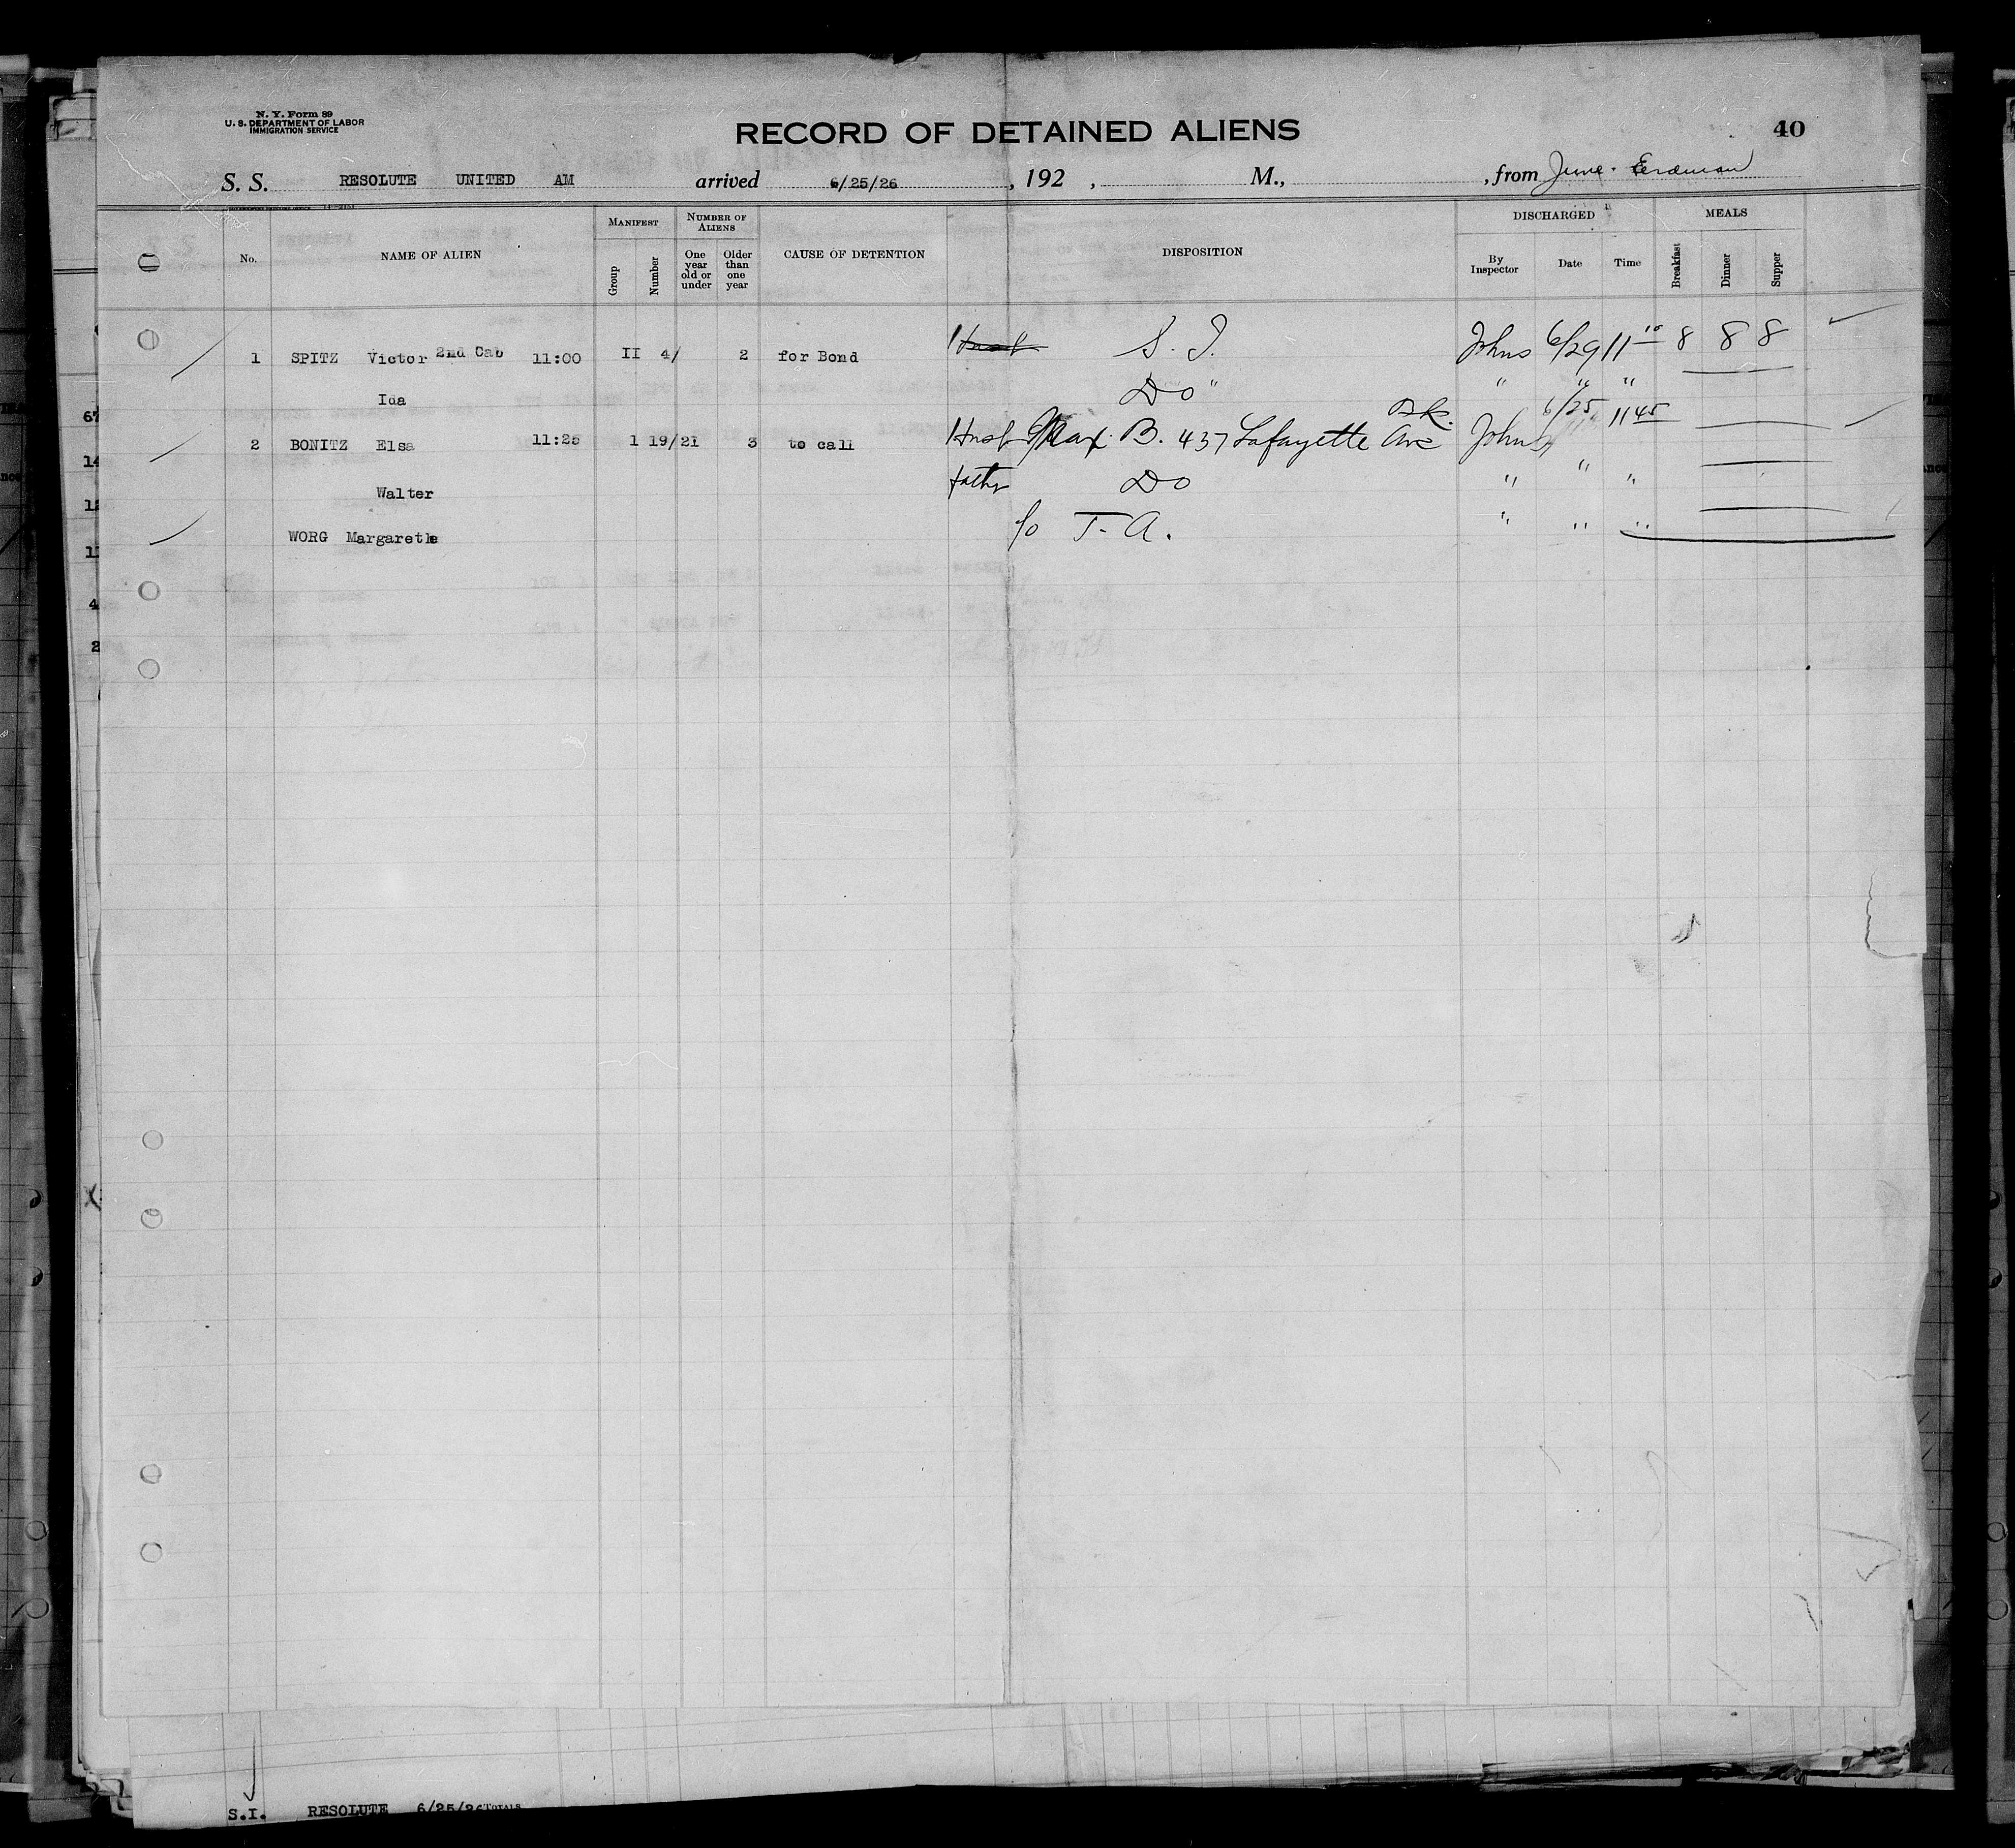 N. Y. Form 89
U. S. DEPARTMENT OF LABOR
IMMIGRATION SERVICE
RECORD OF DETAINED ALIENS
40
S. S. RESOLUTE UNITED AM arrived 6/25/26, 192 , M., , from June Erdman
No. NAME OF ALIEN MANIFEST Group Number NUMBER OF ALIENS One year old or under Older than one year CAUSE OF DETENTION DISPOSITION DISCHARGED By Inspector Date Time MEALS Breakfast Dinner Supper
1 SPITZ Victor 2nd Cab 11:00 II 4/ 2 for Bond Husb S. I. Johns 6/29 11 10 8 8 8
Ida Do " " " "
2 BONITZ Elsa 11:25 1 19/21 3 to call Husb Max B. 437 Lafayette Ave Bk. Johns 6/25 11 45
Walter father Do " " "
WORG Margarethe c/o T. A. " " "
67
14
4
2
S.I. RESOLUTE 6/25/26 TOTALS